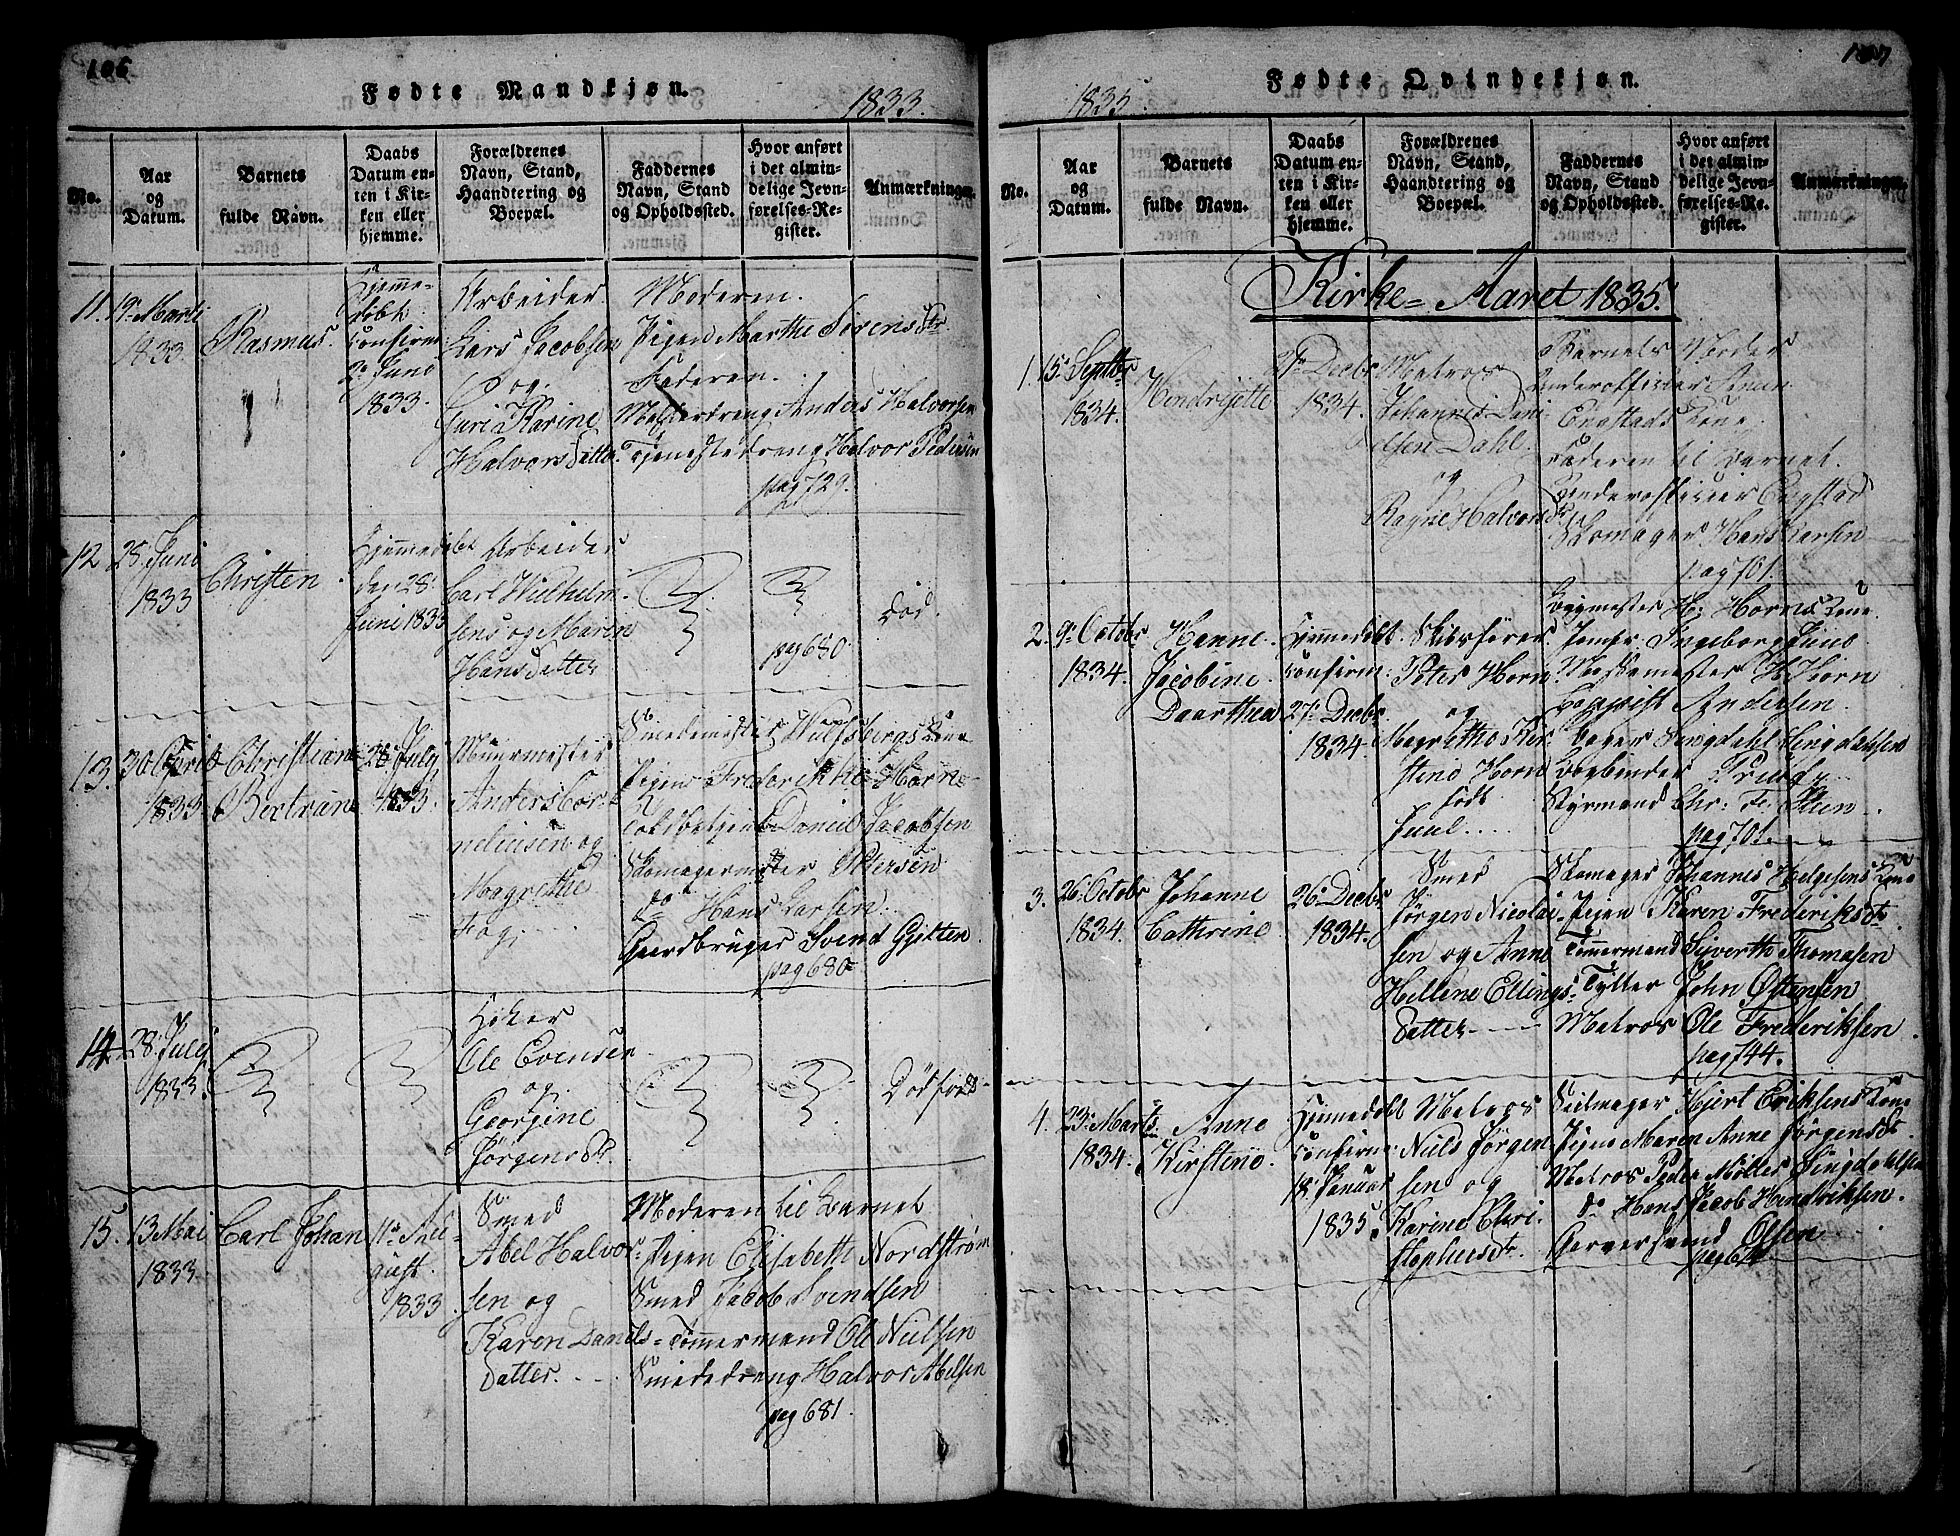 106
Fødte Mandkjøn.
1833.
No.
Aar
og
Datum.
Barnets
fulde Navn.
Daabs
Datum en-
ten i Kir-
ken eller
hjemme.
Forældrenes
Navn, Stand,
Haandtering og
Boepæl.
Faddernes
Navn, Stand
og Opholdssted.
Hvor anført
i det almin-
delige Jevn-
førelses-Re-
gister.
Anmærkninger
11.
19. Marti
1833.
Rasmus.
Hjemme-
døbt
confirm:
2. Juno
1833.
Arbeider
Lars Jacobsen
og
Guri Karine
Halvorsdatter.
Moderen.
Pigen Marthe Sørensdtr.
Faderen.
Anders Halvorsen
Tjenestedreng Halvor Pedersen
pag 729.
12
28. Juni
1833
Christen
Hjemmedøbt
den 28.
Juni 1833
Arbeider
Carl Wilhelm-
sens og Maren
Hansdatter
pag 680
Død.
13.
30 April
1833
Christiane
Bertrine
28. July
1833.
Muurmester
Anders Cor-
neliusen og
Magrethe
Fog.
Smedemester Wulfsbergs Kone
Pigen Frederikke Horne
Toldbetjent Daniel Jacobsen
Skomagermester Petersen
do Hans Larsen
Gaardbruger Svend Gjetten
pag 680
14
28. July
1833.
Høker
Ole Evensen
og
Georgine
Jørgensdtr.
Dødfødt
15.
13 Mai
1833
Carl Johan
11. Au-
gust
1833.
Smed
Abel Halvor-
sen og
Karen Daniels-
datter.
Moderen til Barnet
Pigen Elisabeth Nordstrøm
Smed Jacob Svendsen
Tømmermand Ole Nielsen
Smededreng Halvor Abelsen
pag 681.
107
Fødte Qvindekjøn.
1835
No.
Aar
og
Datum.
Barnets
fulde Navn.
Daabs
Datum en-
ten i Kir-
ken eller
hjemme.
Forældrenes
Navn, Stand,
Haandtering og
Boepæl.
Faddernes
Navn, Stand
og Opholdssted.
Hvor anført
i det almin-
delige Jevn-
førelses-Re-
gister.
Anmærkninger.
Kirke-Aaret 1835.
1.
15. Septbr
1834.
Hendrijette
Decbr
1834.
Matros
Johannes Dani-
elsen Dahl.
og
Ragne Halvorsdtr
Barnets Moder
Underofficier
Engstads Kone.
Faderen til Barnet.
Underofficier Engstad
Skomager Hans Larsen
pag 701.
2.
9. Octobr
1834.
Hanne
Jacobine
Daarthea
Hjemmedøbt.
confirm:
27. Decbr
1834.
Skibsfører
Peter Horn
og
Magrethe Kir-
stine Horn
født
Juul....
Bygmester H. Horns Kone
Jomfr. Ingeborg Juul
H. Horn
Andersen.
Bager Lingdahl Lingdahlsen
Bogbinder
Styrmand Chr: F.
pag 701.
3.
26. Octobr
1834.
Johanne
Cathrine
26. Decbr
1834.
Smed
Jørgen Nicolai-
sen og Anne
Hellene Ellings-
datter
Skomager Johannes Helgesens Kone
Pigen Karen Frederiksdtr
Tømmermand Siverth Thomasen
John Østensen
Matros Ole Frederiksen
pag 744.
4.
23. Marts
1834.
Anne
Kirstine.
Hjemmedøbt
confirm:
18. Januar
1835
Matros
Niels Jørgen
sen og
Karine Chri-
stophersdtr.
Seilmager Hjert Eriksens Kone
Pigen Maren Anne Jørgensdtr.
Matros Peder Møller Lingdahlsen
do Hans Jacob Hendriksen.
Garversvend Olsen